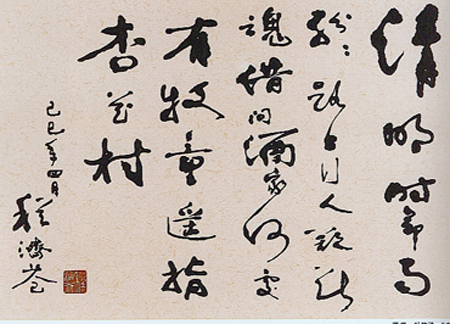 清明时节雨
纷纷路上行人欲断
魂借问酒家何处
有牧童遥指
杏花村
己巳年四月
濟